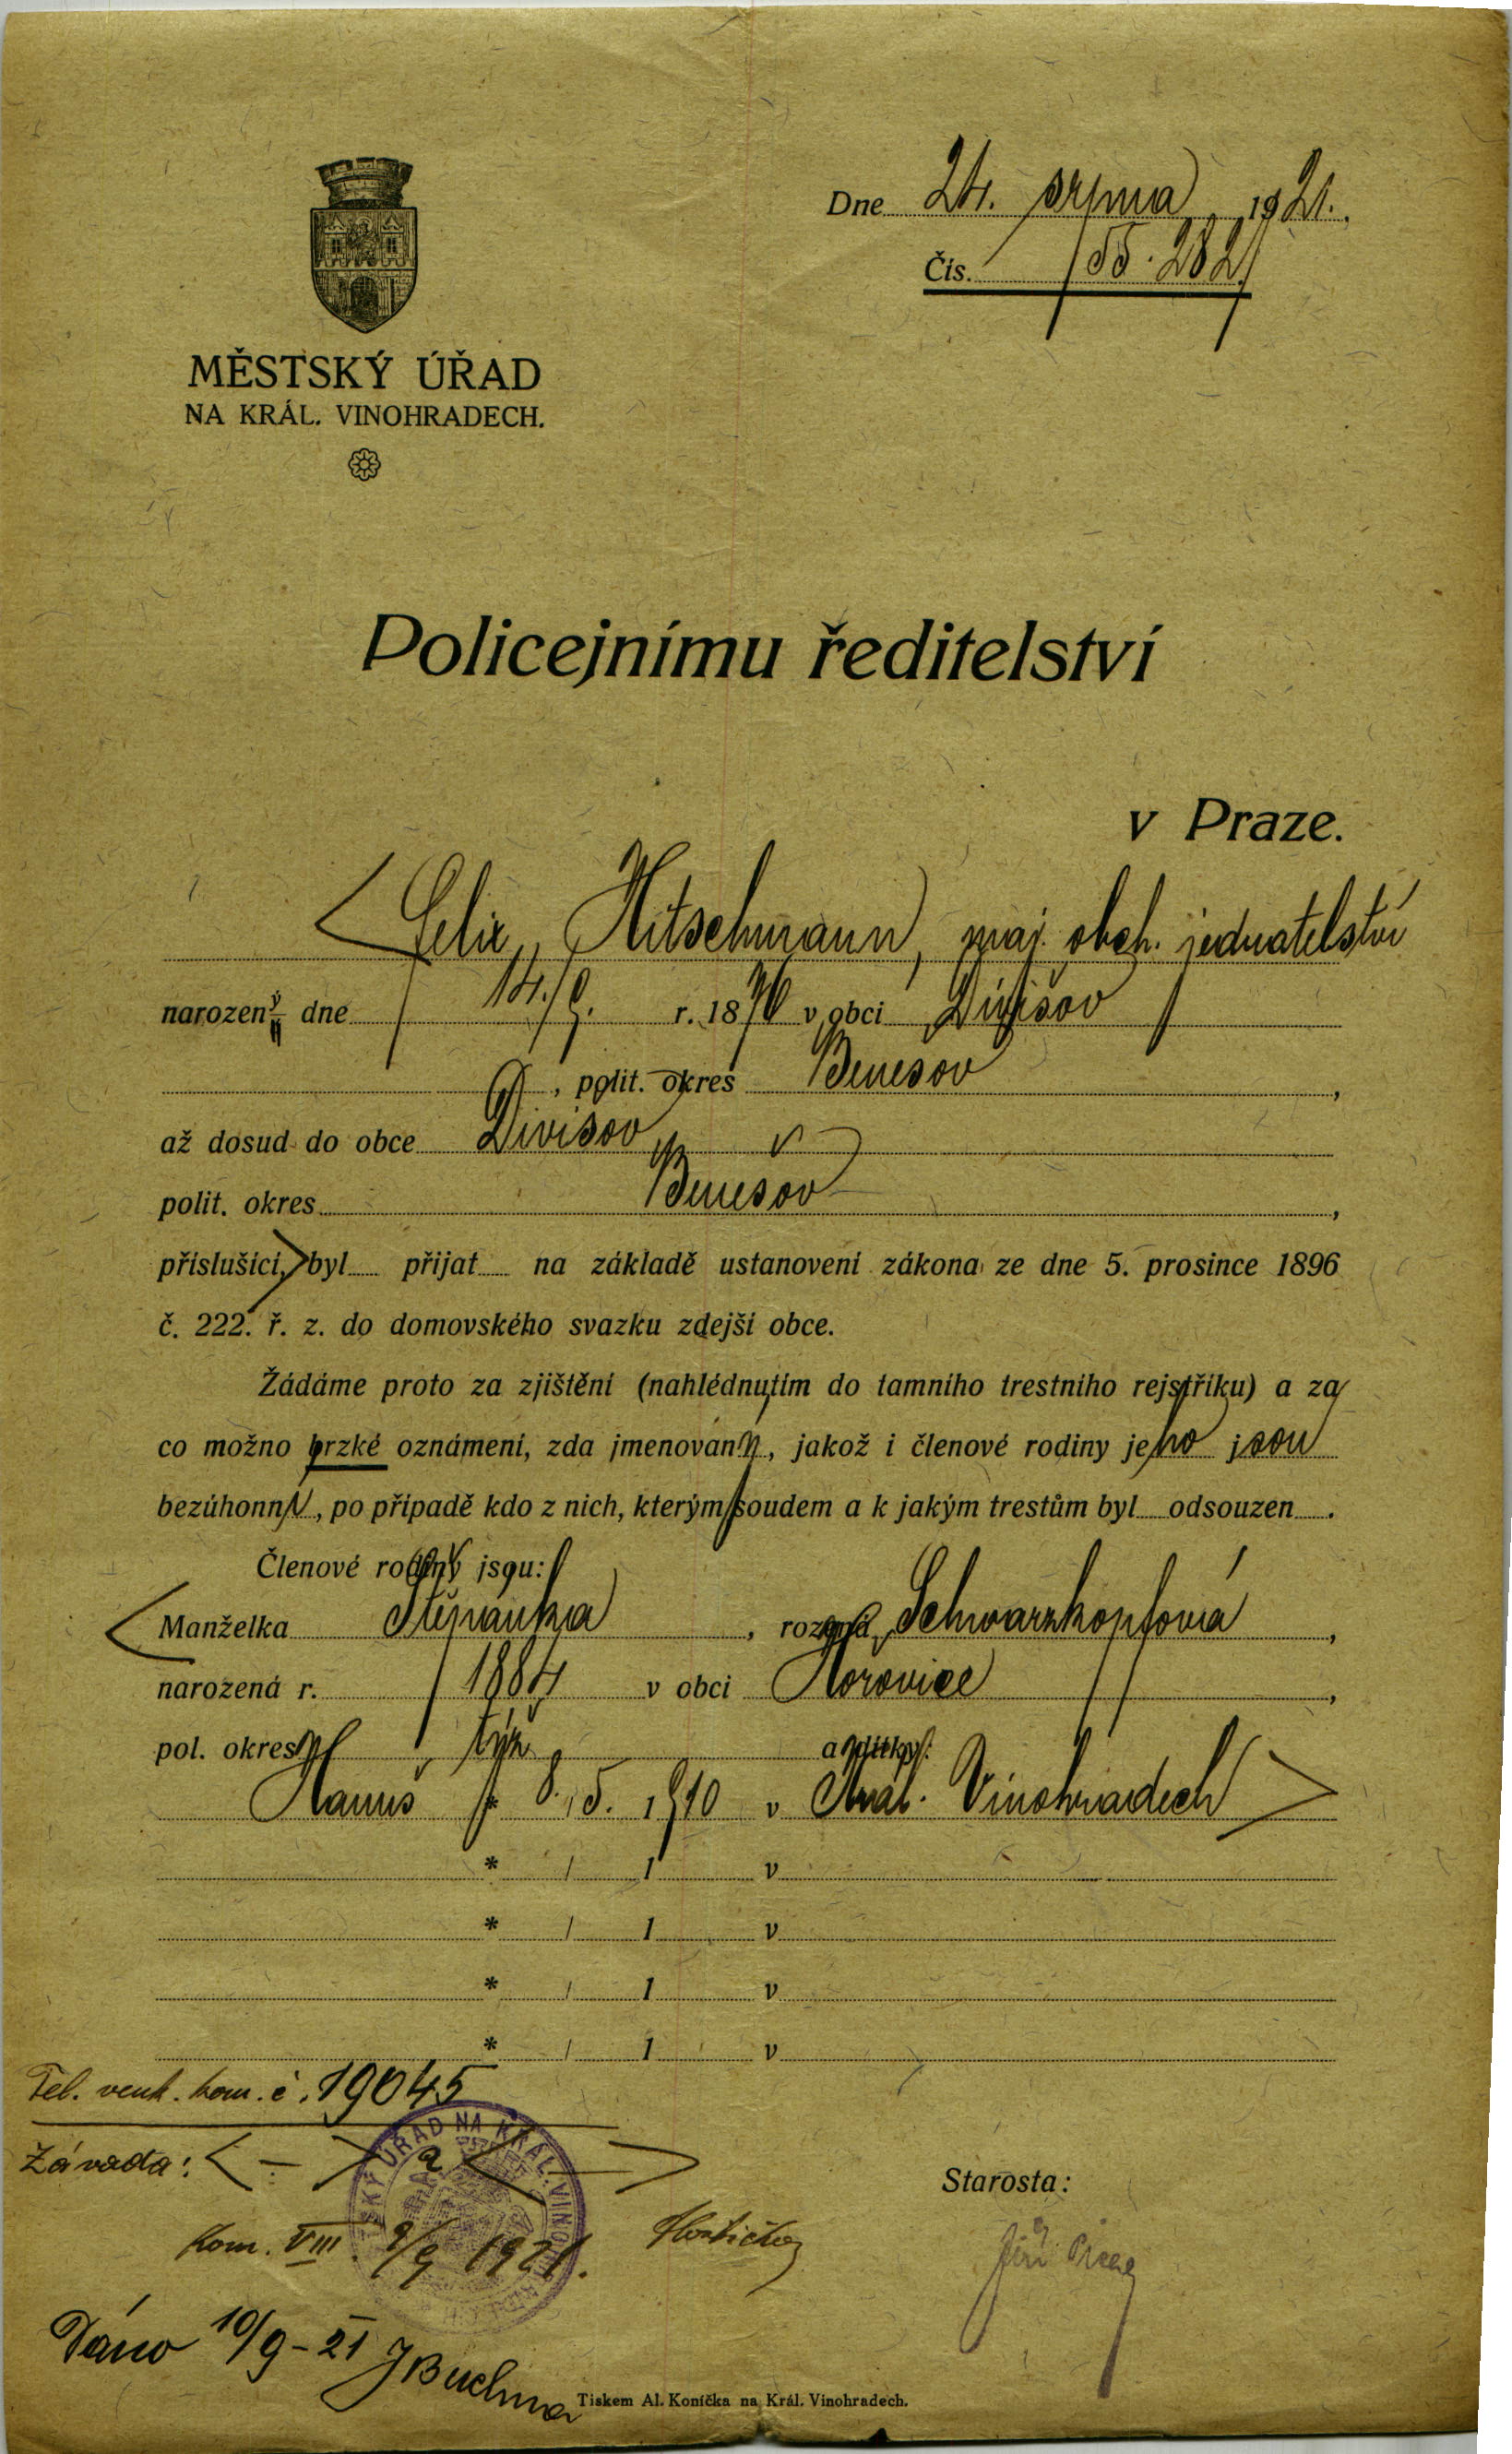 Dne 24. srpna 1921.
Čís. 155.282/
MĚSTSKÝ ÚŘAD
NA KRÁL. VINOHRADECH.
Policejnímu ředitelství
v Praze.
Felix Hitschmann, maj. obch. jednatelství
narozený dne 14./9. r. 1876 v obci Divišov
, polit. okres Benešov,
až dosud do obce Divišov
polit. okres Benešov,
příslušící, byl přijat na základě ustanovení zákona ze dne 5. prosince 1896
č. 222. ř. z. do domovského svazku zdejší obce.
Žádáme proto za zjištění (nahlédnutím do tamního trestního rejstříku) a za
co možno brzké oznámení, zda jmenovaný, jakož i členové rodiny jeho jsou
bezúhonni, po případě kdo z nich, kterým soudem a k jakým trestům byl odsouzen.
Členové rodiny jsou:
Manželka Štěpánka, rozená Schwarzkopfová,
narozená r. 1884 v obci Hořovice,
pol. okres týž a dítky:
Hanuš * 8./5. 1910 v Král. Vinohradech
* / 1 v
* / 1 v
* / 1 v
* / 1 v
Tel. venk. kom. č. 19045
Závada: – a –
Kom. VIII. 9/9 1921.
Starosta:
Dáno 10/9-21
ÚŘAD NA KRÁL. VINOHRADECH
Tiskem Al. Koníčka na Král. Vinohradech.